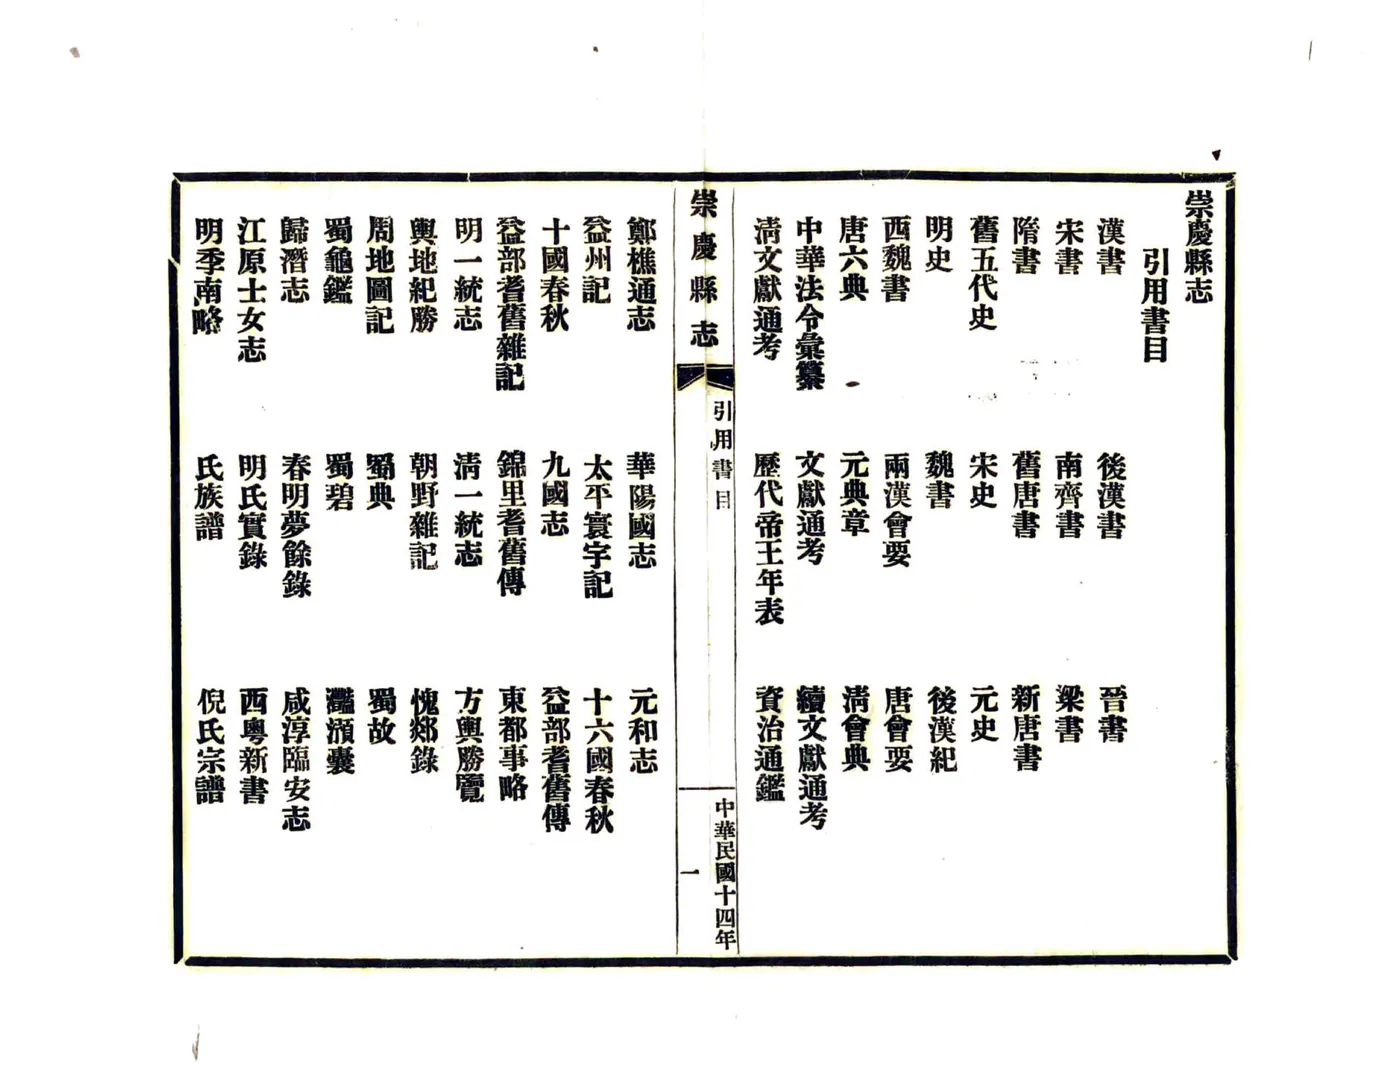 崇慶縣志
引用書目
漢書 後漢書 晉書
宋書 南齊書 梁書
隋書 舊唐書 新唐書
舊五代史 宋史 元史
明史 魏書 後漢紀
西魏書 兩漢會要 唐會要
唐六典 元典章 清會典
中華法令彙纂 文獻通考 續文獻通考
清文獻通考 歷代帝王年表 資治通鑑
崇慶縣志
引用書目
一
中華民國十四年
鄭樵通志 華陽國志 元和志
益州記 太平寰宇記 十六國春秋
十國春秋 九國志 益部耆舊傳
益部耆舊雜記 錦里耆舊傳 東都事略
明一統志 清一統志 方輿勝覽
輿地紀勝 朝野雜記 愧郯錄
周地圖記 蜀典 蜀故
蜀龜鑑 蜀碧 灩澦囊
歸潛志 春明夢餘錄 咸淳臨安志
江原士女志 明氏實錄 西粵新書
明季南略 氏族譜 倪氏宗譜